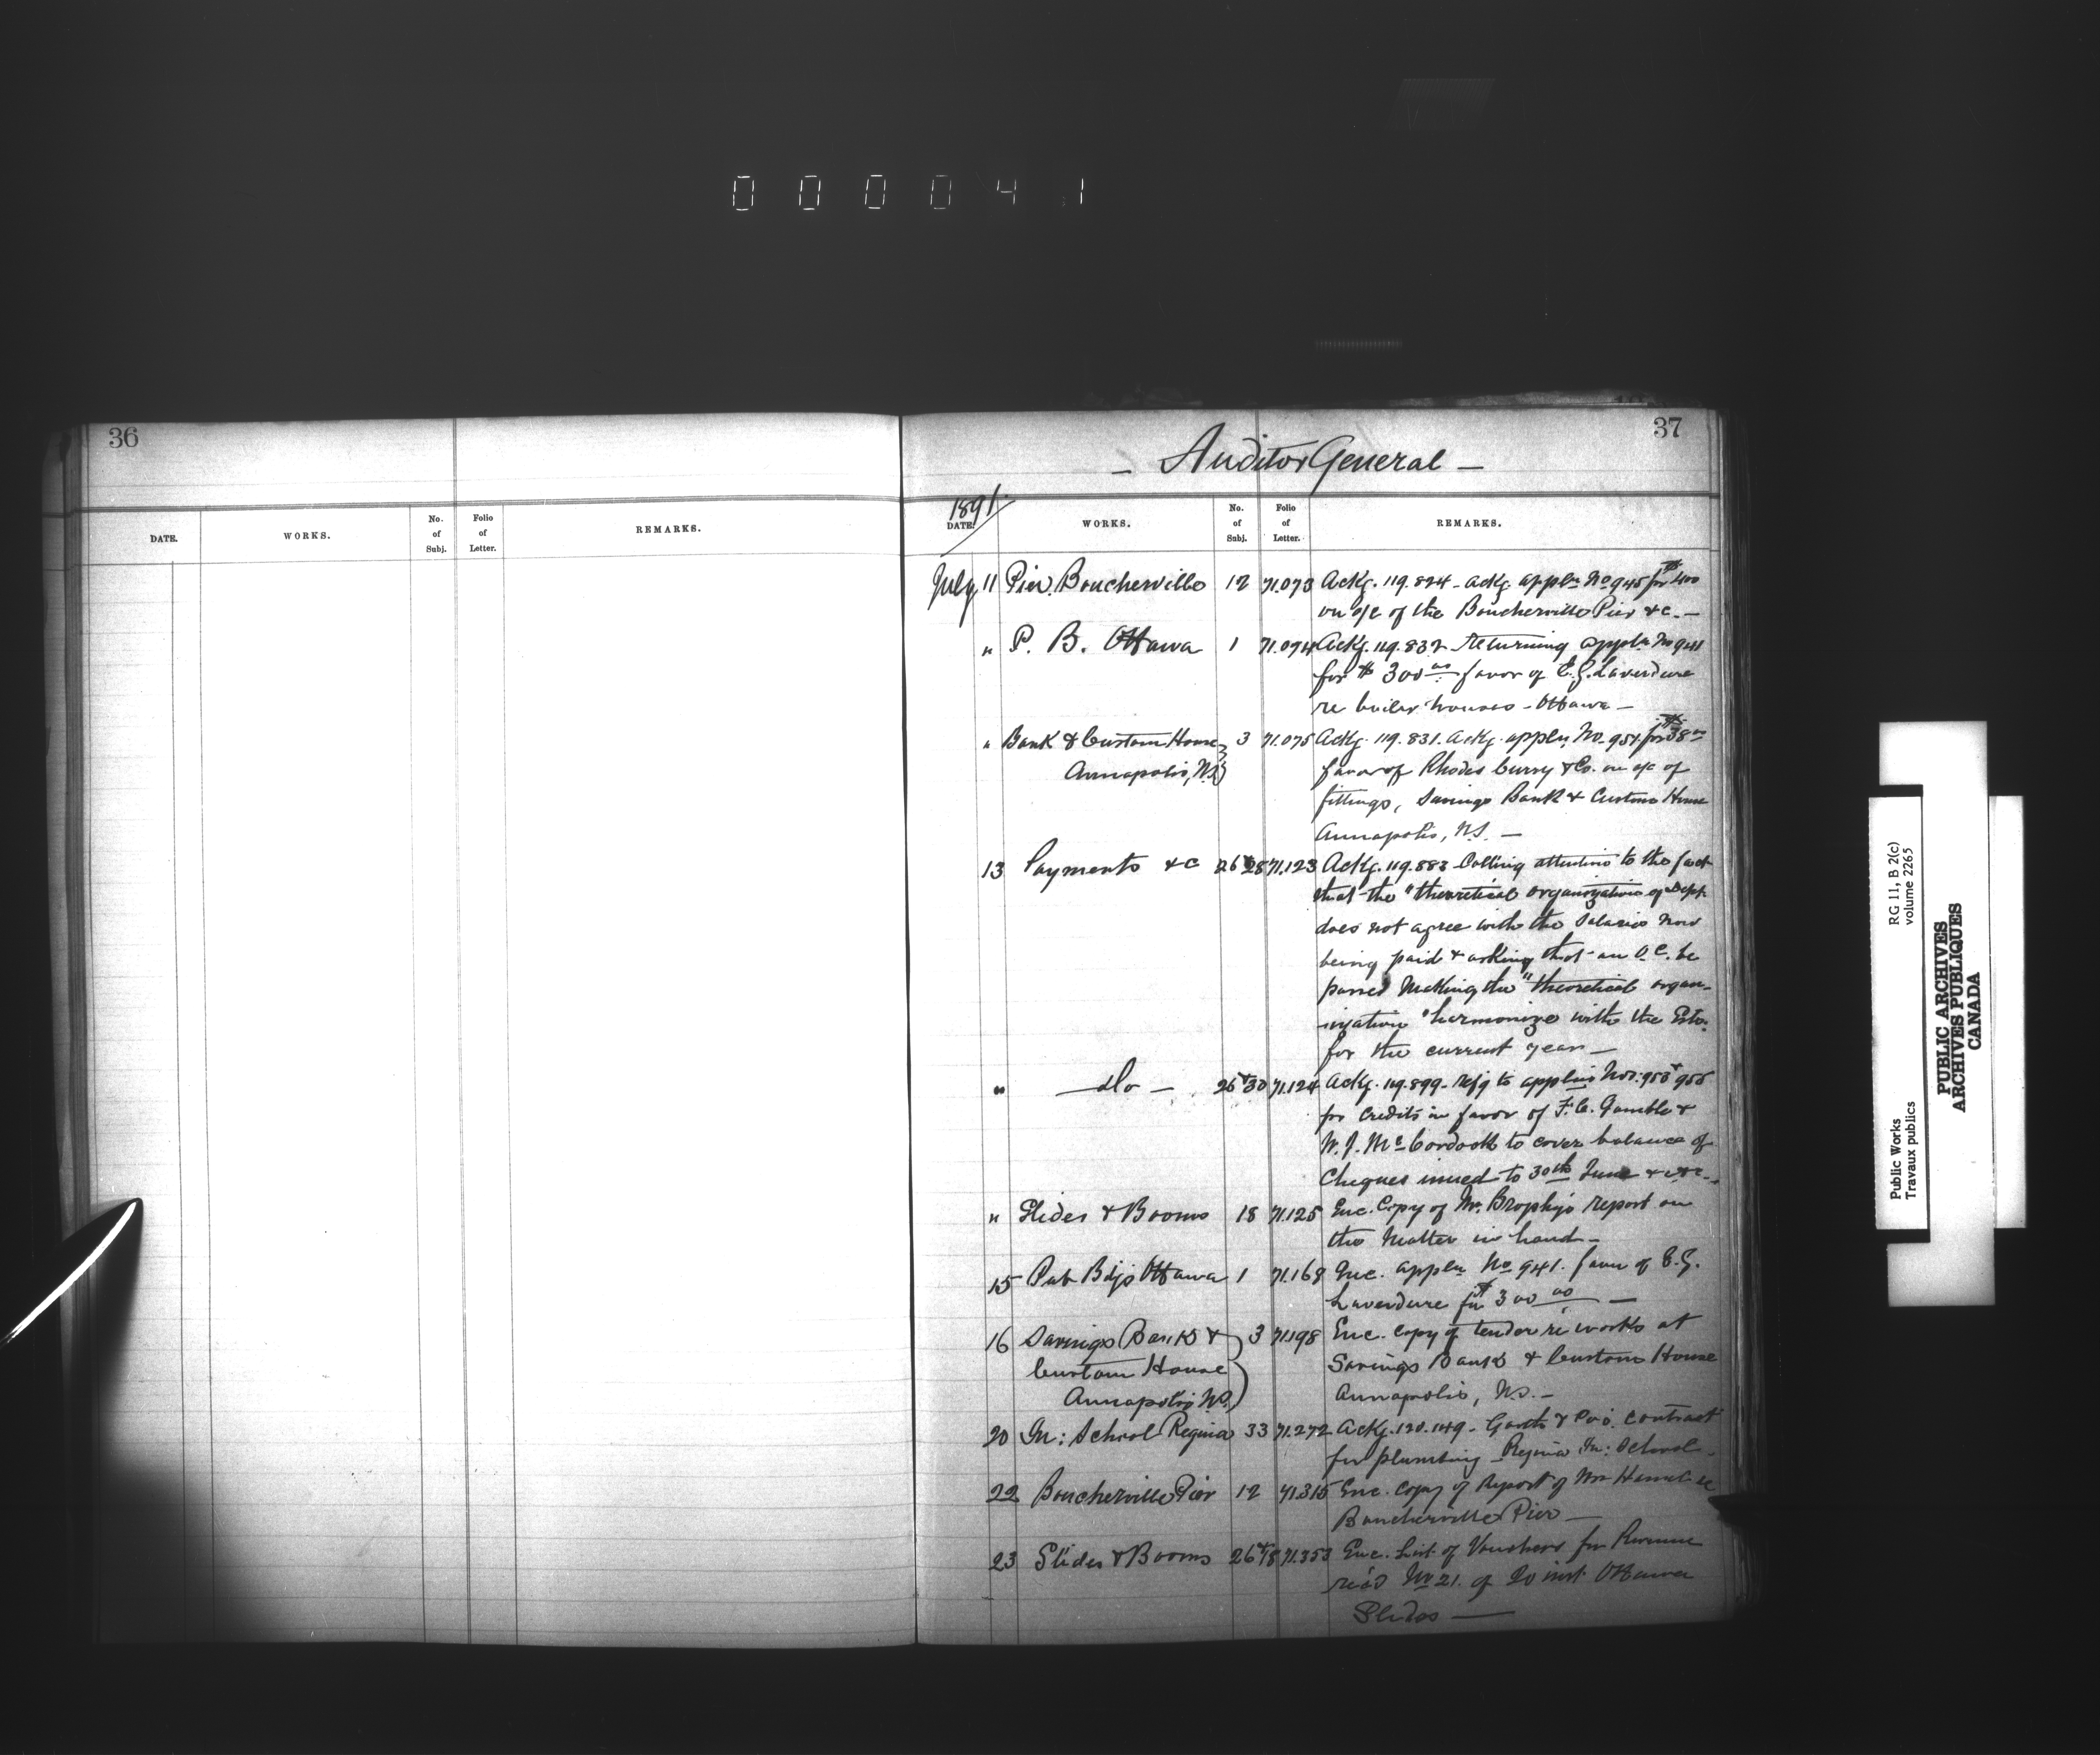 0 0 0 0 4 1
36
DATE. WORKS. No. of Subj. Folio of Letter. REMARKS.
37
- Auditor General -
1891
DATE. WORKS. No. of Subj. Folio of Letter. REMARKS.
July 11 Pier Boucherville 12 71.073 Ackg. 119.824 - ackg. appln No 945 for $400
on a/c of the Boucherville Pier &c. -
" P. B. Ottawa 1 71.074 Ackg. 119.832 returning appln No 941
for $300 00 favor of E.G. Laverdure
re boiler houses - Ottawa -
" Bank & Custom House 3 71.075 Ackg. 119.831. ackg. appln No. 954 for $38
Annapolis, N.S.
favor of Rhodes Curry & Co. on a/c of
fittings, Savings Bank & Custom House
Annapolis, N.S. -
13 Payments &c 26 & 28 71.123 Ackg. 119.883 Calling attention to the fact
that the "theoretical organization of Dept.
does not agree with the Salaries now
being paid & asking that an O.C. be
passed making the "theoretical organ-
ization" harmonize with the Ests.
for the current year -
" - do - 26 & 30 71.124 Ackg. 119.899 - refg to applns Nos: 953 & 955
for credits in favor of F.C. Gamble &
W.J. McCordock to cover balance of
Cheques issued to 30th June &c &c -
" Slides & Booms 18 71.125 Enc. Copy of Mr. Brophy's report on
the matter in hand -
15 Pub Bdgs Ottawa 1 71.168 Enc. appln No 941. favor of E.G.
Laverdure for $300 00 -
16 Savings Bank & 3 71.198 Enc. copy of tender re works at
Custom House
Savings Bank & Custom House
Annapolis N.S.
Annapolis, N.S. -
20 In: School Regina 33 71.272 Ackg. 120.149 - Garth & Co's. contract
for plumbing - Regina In: School -
22 Boucherville Pier 12 71.315 Enc. copy of Report of Mr Hamel re
Boucherville Pier -
23 Slides & Booms 26 & 18 71.353 Enc. List of Vouchers for Revenue
rec'd No 21. of 20 inst Ottawa
Slides -
Public Works
Travaux publics
RG 11, B 2(c)
volume 2265
PUBLIC ARCHIVES
ARCHIVES PUBLIQUES
CANADA